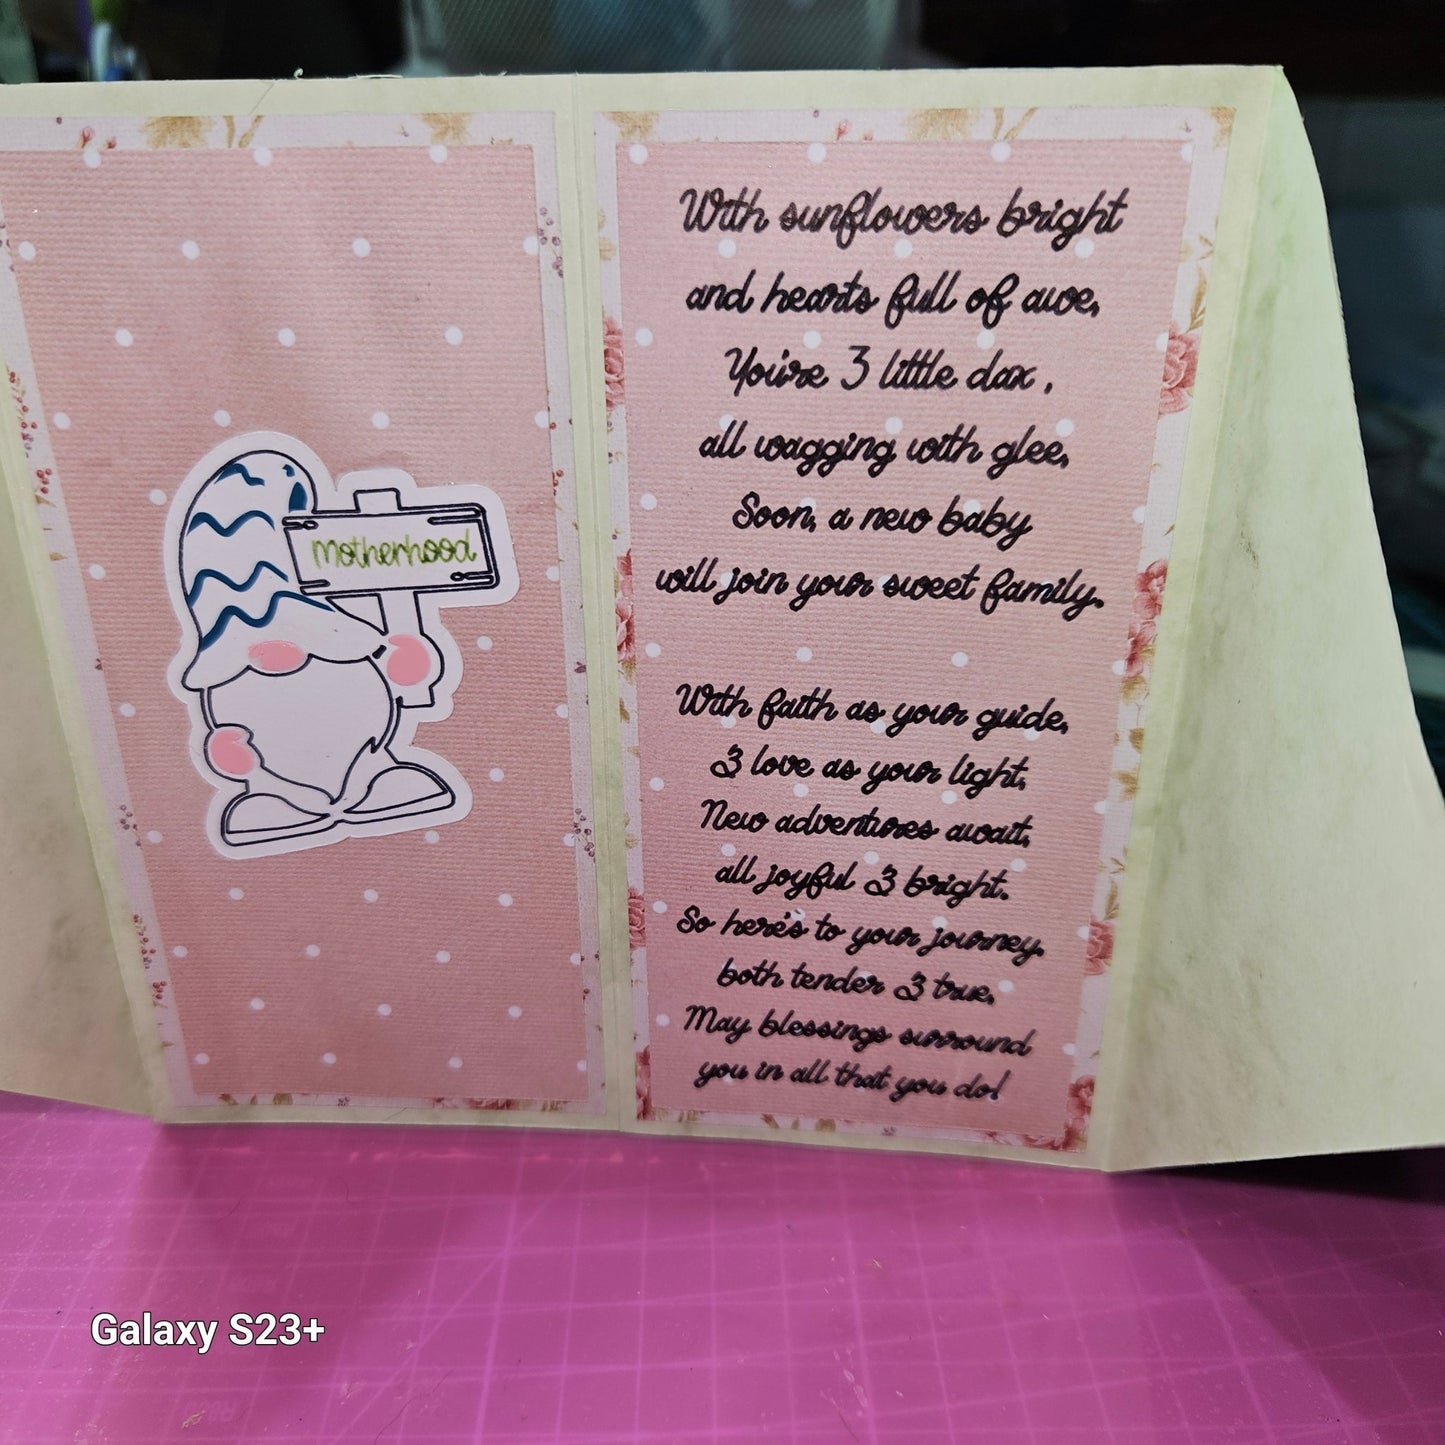 motherhood
With sunflowers bright
and hearts full of awe,
You're 3 little dax ,
all wagging with glee,
Soon, a new baby
will join your sweet family.
With faith as your guide,
& love as your light,
New adventures await,
all joyful & bright.
So here's to your journey,
both tender & true,
May blessings surround
you in all that you do!
Galaxy S23+